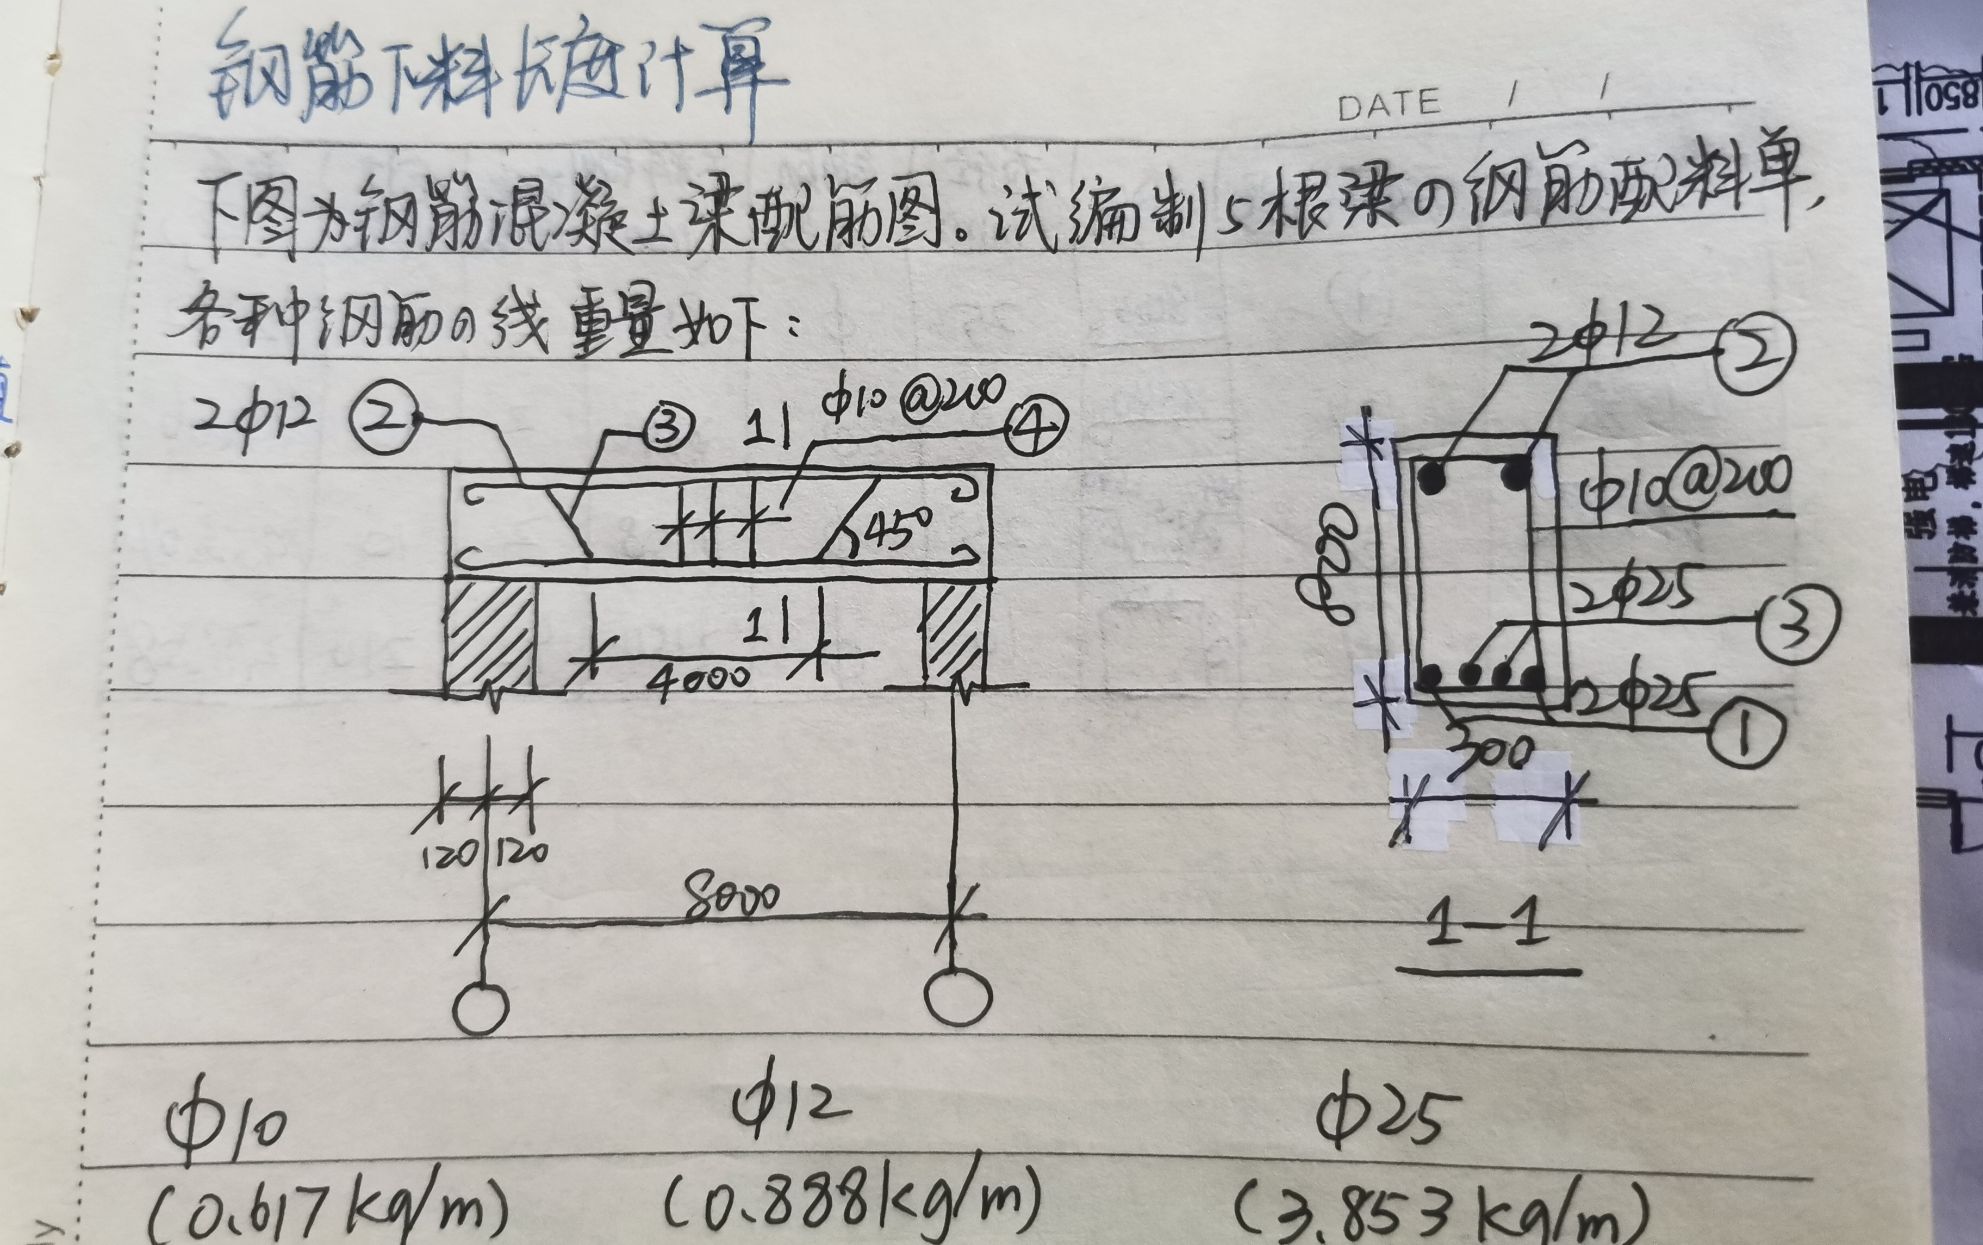 钢筋下料长度计算
DATE / /
下图为钢筋混凝土梁配筋图。试编制5根梁の钢筋配料单,
各种钢筋の线重量如下:
2ф12 ② ③ 1| ф10@200 ④
2ф12 ②
45°
ф10@200
800
2ф25 ③
1|
4000
2ф25 ①
300
120 120
8000
1-1
ф10 ф12 ф25
(0.617kg/m) (0.888kg/m) (3.853kg/m)
850
强电